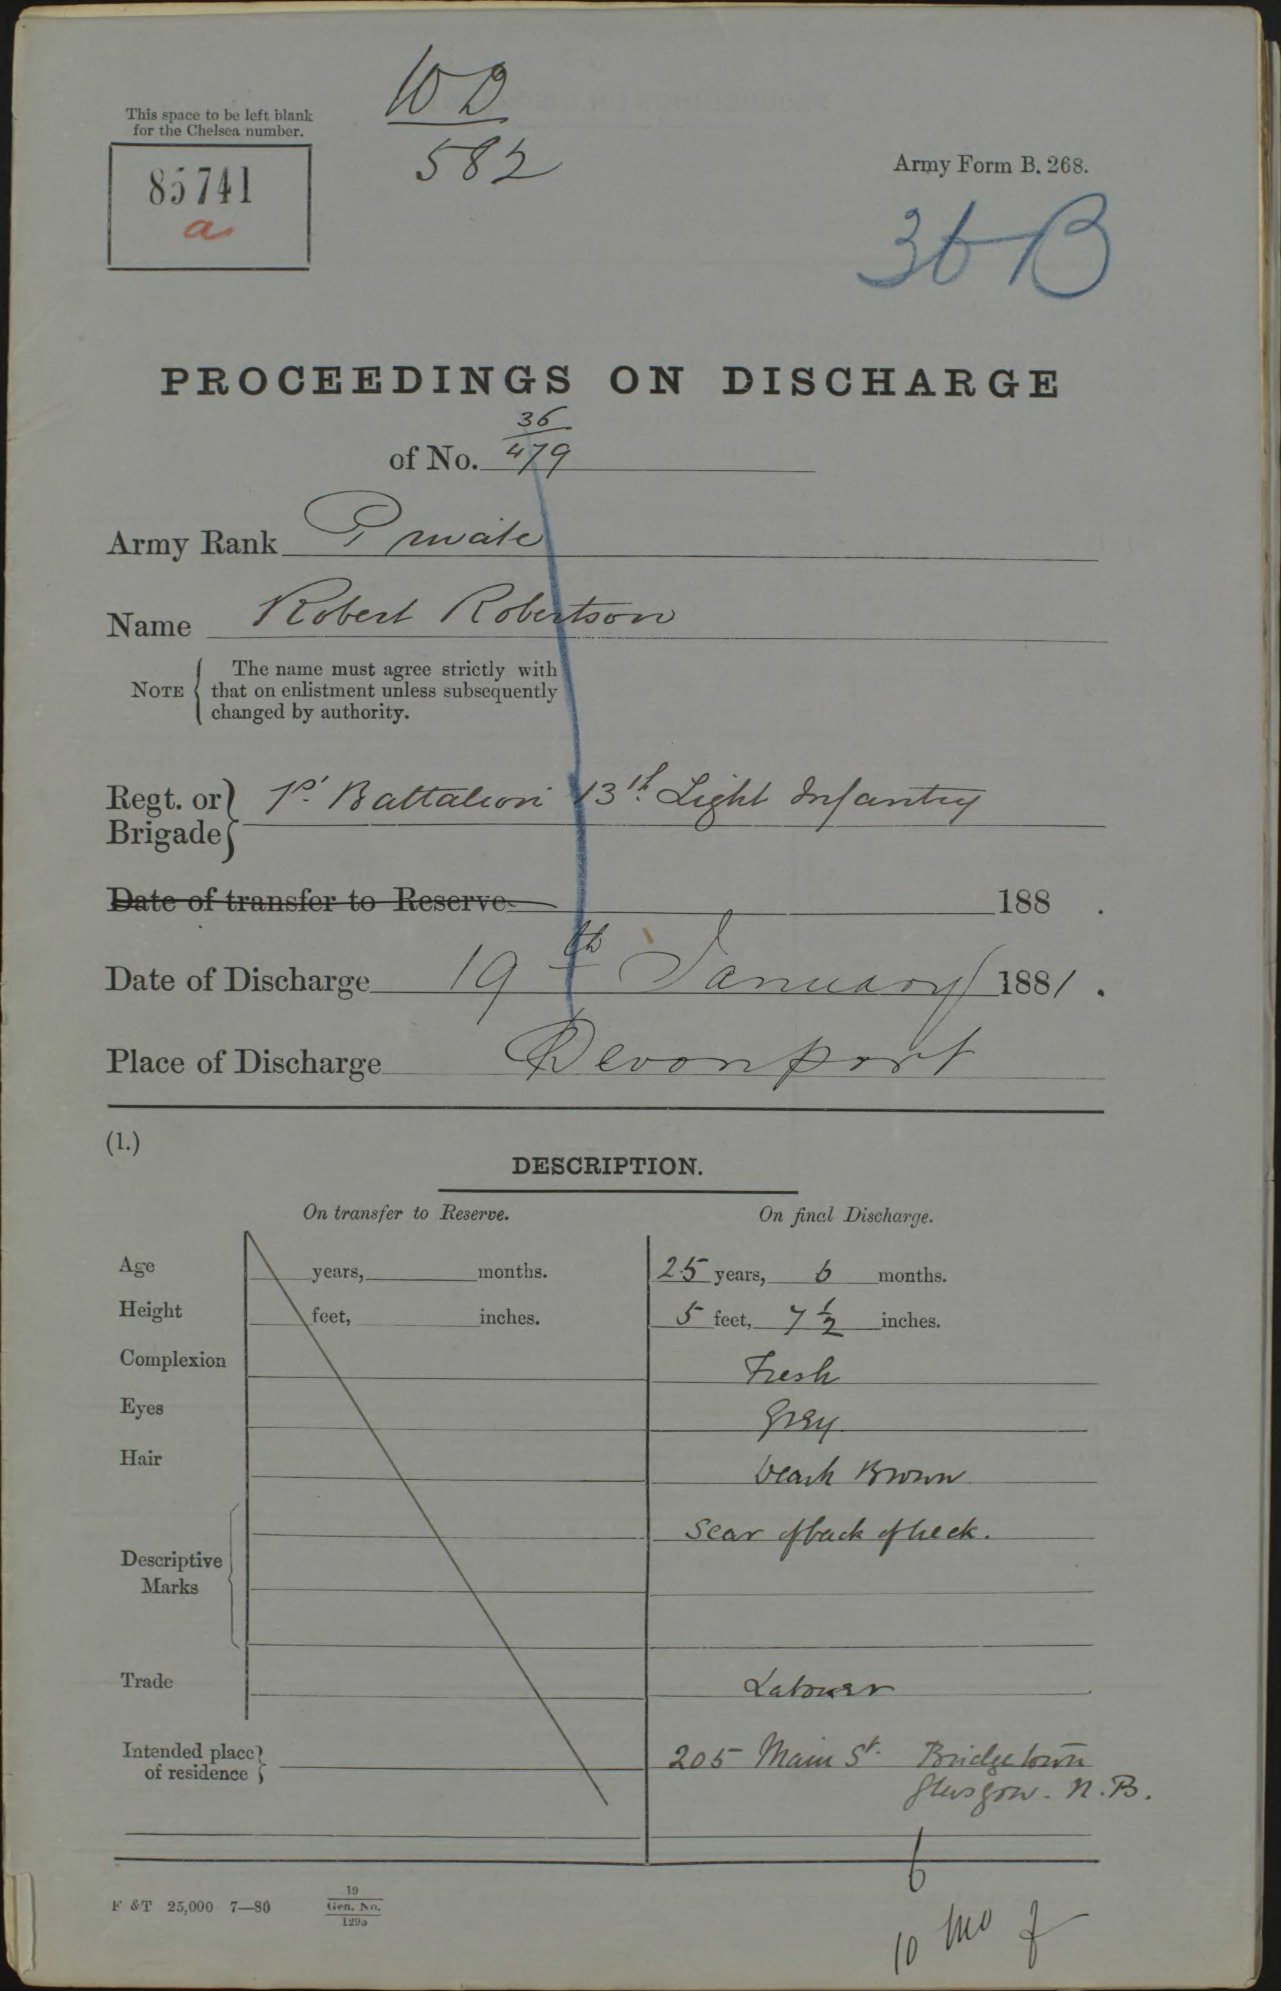 This space to be left blank
for the Chelsea number.
85741
a
WD
582
Army Form B. 268.
36 B
PROCEEDINGS ON DISCHARGE
of No. 36/479
Army Rank Private
Name Robert Robertson
NOTE { The name must agree strictly with
that on enlistment unless subsequently
changed by authority.
Regt. or } 1st Battalion 13th Light Infantry
Brigade }
Date of transfer to Reserve 188 .
Date of Discharge 19th January 1881.
Place of Discharge Devonport
(1.)
DESCRIPTION.
On transfer to Reserve. On final Discharge.
Age years, months. 25 years, 6 months.
Height feet, inches. 5 feet, 7 1/2 inches.
Complexion Fresh
Eyes Grey
Hair Dark Brown
Scar of back of neck.
Descriptive
Marks
Trade Labourer
Intended place } 205 Main St. Bridgetown
of residence } Glasgow. N.B.
6
10 mo
F & T 25,000 7—80
19
Gen. No.